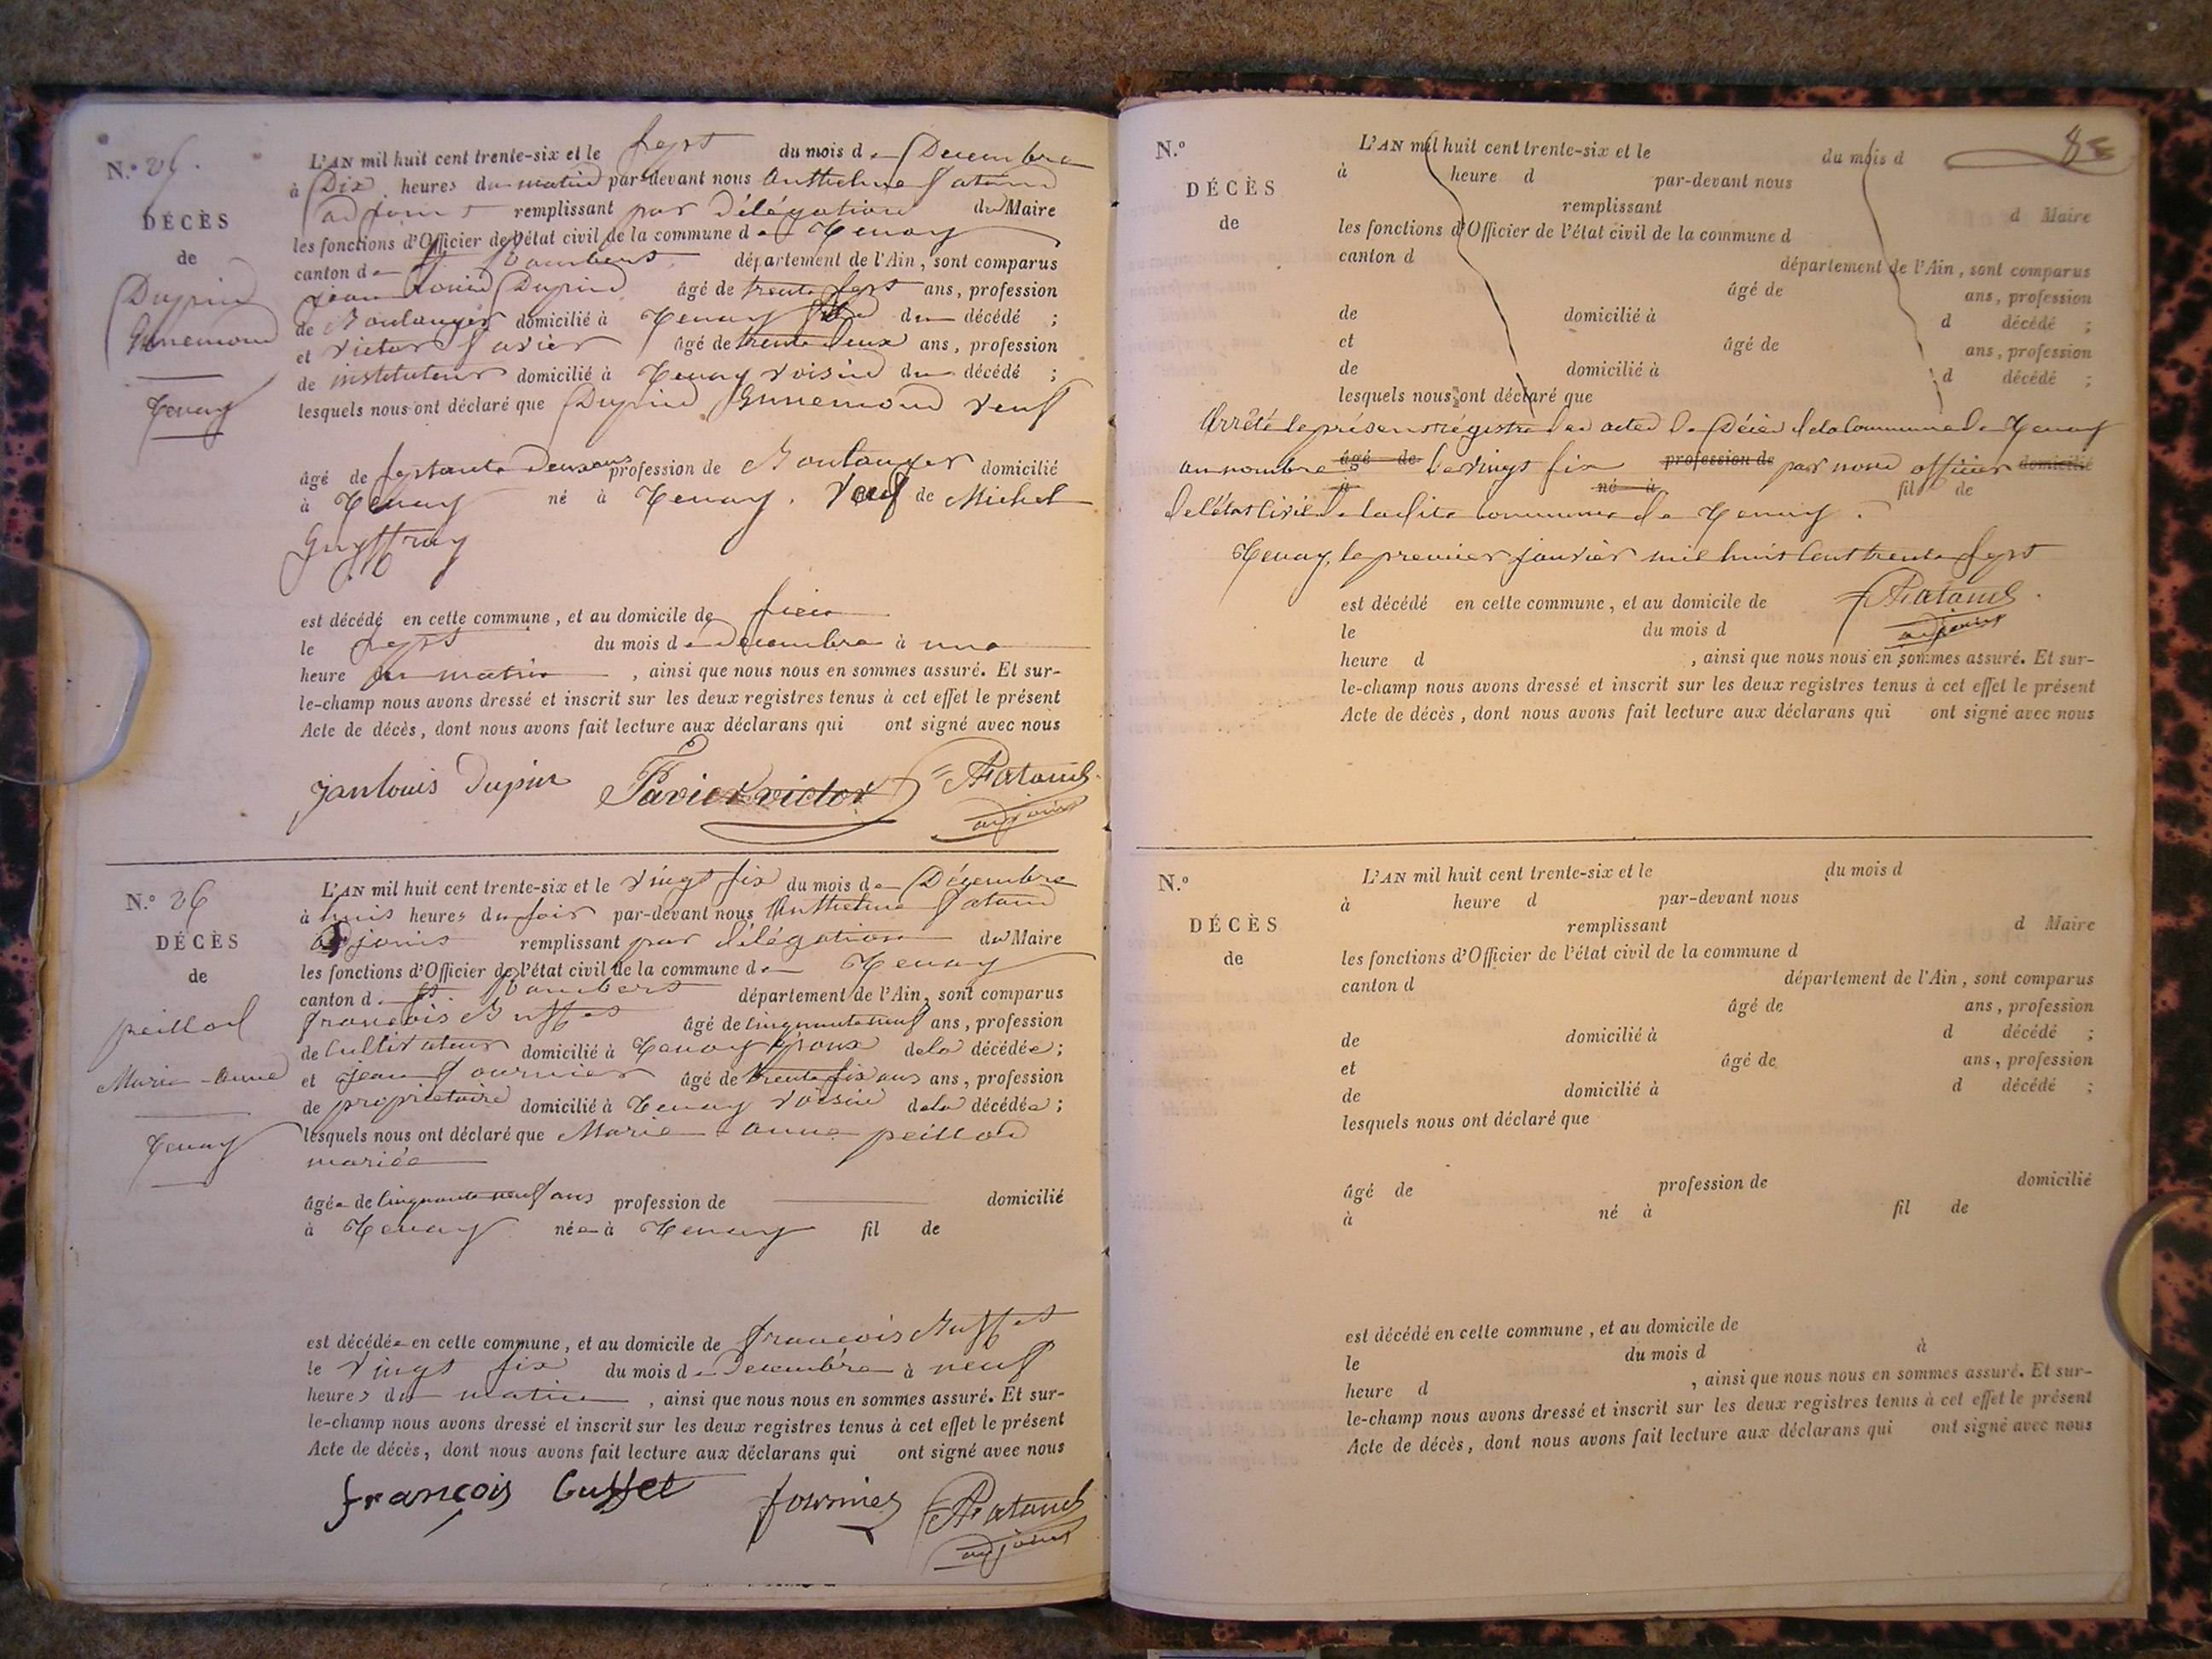 N.º 25.
DÉCÈS
de
Dupin
Gunemond
Tenay
L'AN mil huit cent trente-six et le sept du mois de Decembre
à Dix heures du matin par-devant nous Anthelme
adjoint remplissant par Délégation du Maire
les fonctions d'Officier de l'état civil de la commune de Tenay
canton de St Rambert département de l'Ain, sont comparus
Jean Louis Dupin âgé de trente sept ans, profession
de Boulanger domicilié à Tenay fils du décédé ;
et victor favier âgé de trente deux ans, profession
de instituteur domicilié à Tenay voisin du décédé ;
lesquels nous ont déclaré que Dupin Gunemond veuf
âgé de septante deux ans profession de Boulanger domicilié
à Tenay né à Tenay. Veuf de Michel
Guyffray
est décédé en cette commune, et au domicile de sien
le sept du mois de Decembre à une
heure du matin, ainsi que nous nous en sommes assuré. Et sur-
le-champ nous avons dressé et inscrit sur les deux registres tenus à cet effet le présent
Acte de décès, dont nous avons fait lecture aux déclarans qui ont signé avec nous
janlouis Dupin Favier victor
adjoint
N.º 26
DÉCÈS
de
peillod
Marie-Anne
Tenay
L'AN mil huit cent trente-six et le vingt six du mois de Décembre
à huit heures du soir par-devant nous Anthelme
adjoint remplissant par délégation du Maire
les fonctions d'Officier de l'état civil de la commune de Tenay
canton de St Rambert département de l'Ain, sont comparus
françois Buffet âgé de cinquante neuf ans, profession
de Cultivateur domicilié à Tenay époux de la décédée ;
et jean fournier âgé de trente six ans ans, profession
de propriétaire domicilié à Tenay voisin de la décédée ;
lesquels nous ont déclaré que Marie-anne peillod
mariée
âgée de cinquante neuf ans profession de domicilié
à Tenay née à Tenay fil de
est décédée en cette commune, et au domicile de françois Buffet
le vingt six du mois de Decembre à neuf
heures du matin, ainsi que nous nous en sommes assuré. Et sur-
le-champ nous avons dressé et inscrit sur les deux registres tenus à cet effet le présent
Acte de décès, dont nous avons fait lecture aux déclarans qui ont signé avec nous
françois Buffet fournier
adjoint
N.º
DÉCÈS
de
L'AN mil huit cent trente-six et le du mois d
à heure d par-devant nous
remplissant d Maire
les fonctions d'Officier de l'état civil de la commune d
canton d département de l'Ain, sont comparus
âgé de ans, profession
de domicilié à d décédé ;
et âgé de ans, profession
de domicilié à d décédé ;
lesquels nous ont déclaré que
Arrêté le présent régistre des actes de Décès de la Commune de Tenay
au nombre âgé de de vingt six profession de par nous officier domicilié
à né à fil de
de l'état civil de ladite commune de Tenay.
Tenay, le premier janvier mil huit cent trente sept
est décédé en cette commune, et au domicile de
le du mois d adjoint
heure d , ainsi que nous nous en sommes assuré. Et sur-
le-champ nous avons dressé et inscrit sur les deux registres tenus à cet effet le présent
Acte de décès, dont nous avons fait lecture aux déclarans qui ont signé avec nous
N.º
DÉCÈS
de
L'AN mil huit cent trente-six et le du mois d
à heure d par-devant nous
remplissant d Maire
les fonctions d'Officier de l'état civil de la commune d
canton d département de l'Ain, sont comparus
âgé de ans, profession
de domicilié à d décédé ;
et âgé de ans, profession
de domicilié à d décédé ;
lesquels nous ont déclaré que
âgé de profession de domicilié
à né à fil de
est décédé en cette commune, et au domicile de
le du mois d à
heure d , ainsi que nous nous en sommes assuré. Et sur-
le-champ nous avons dressé et inscrit sur les deux registres tenus à cet effet le présent
Acte de décès, dont nous avons fait lecture aux déclarans qui ont signé avec nous